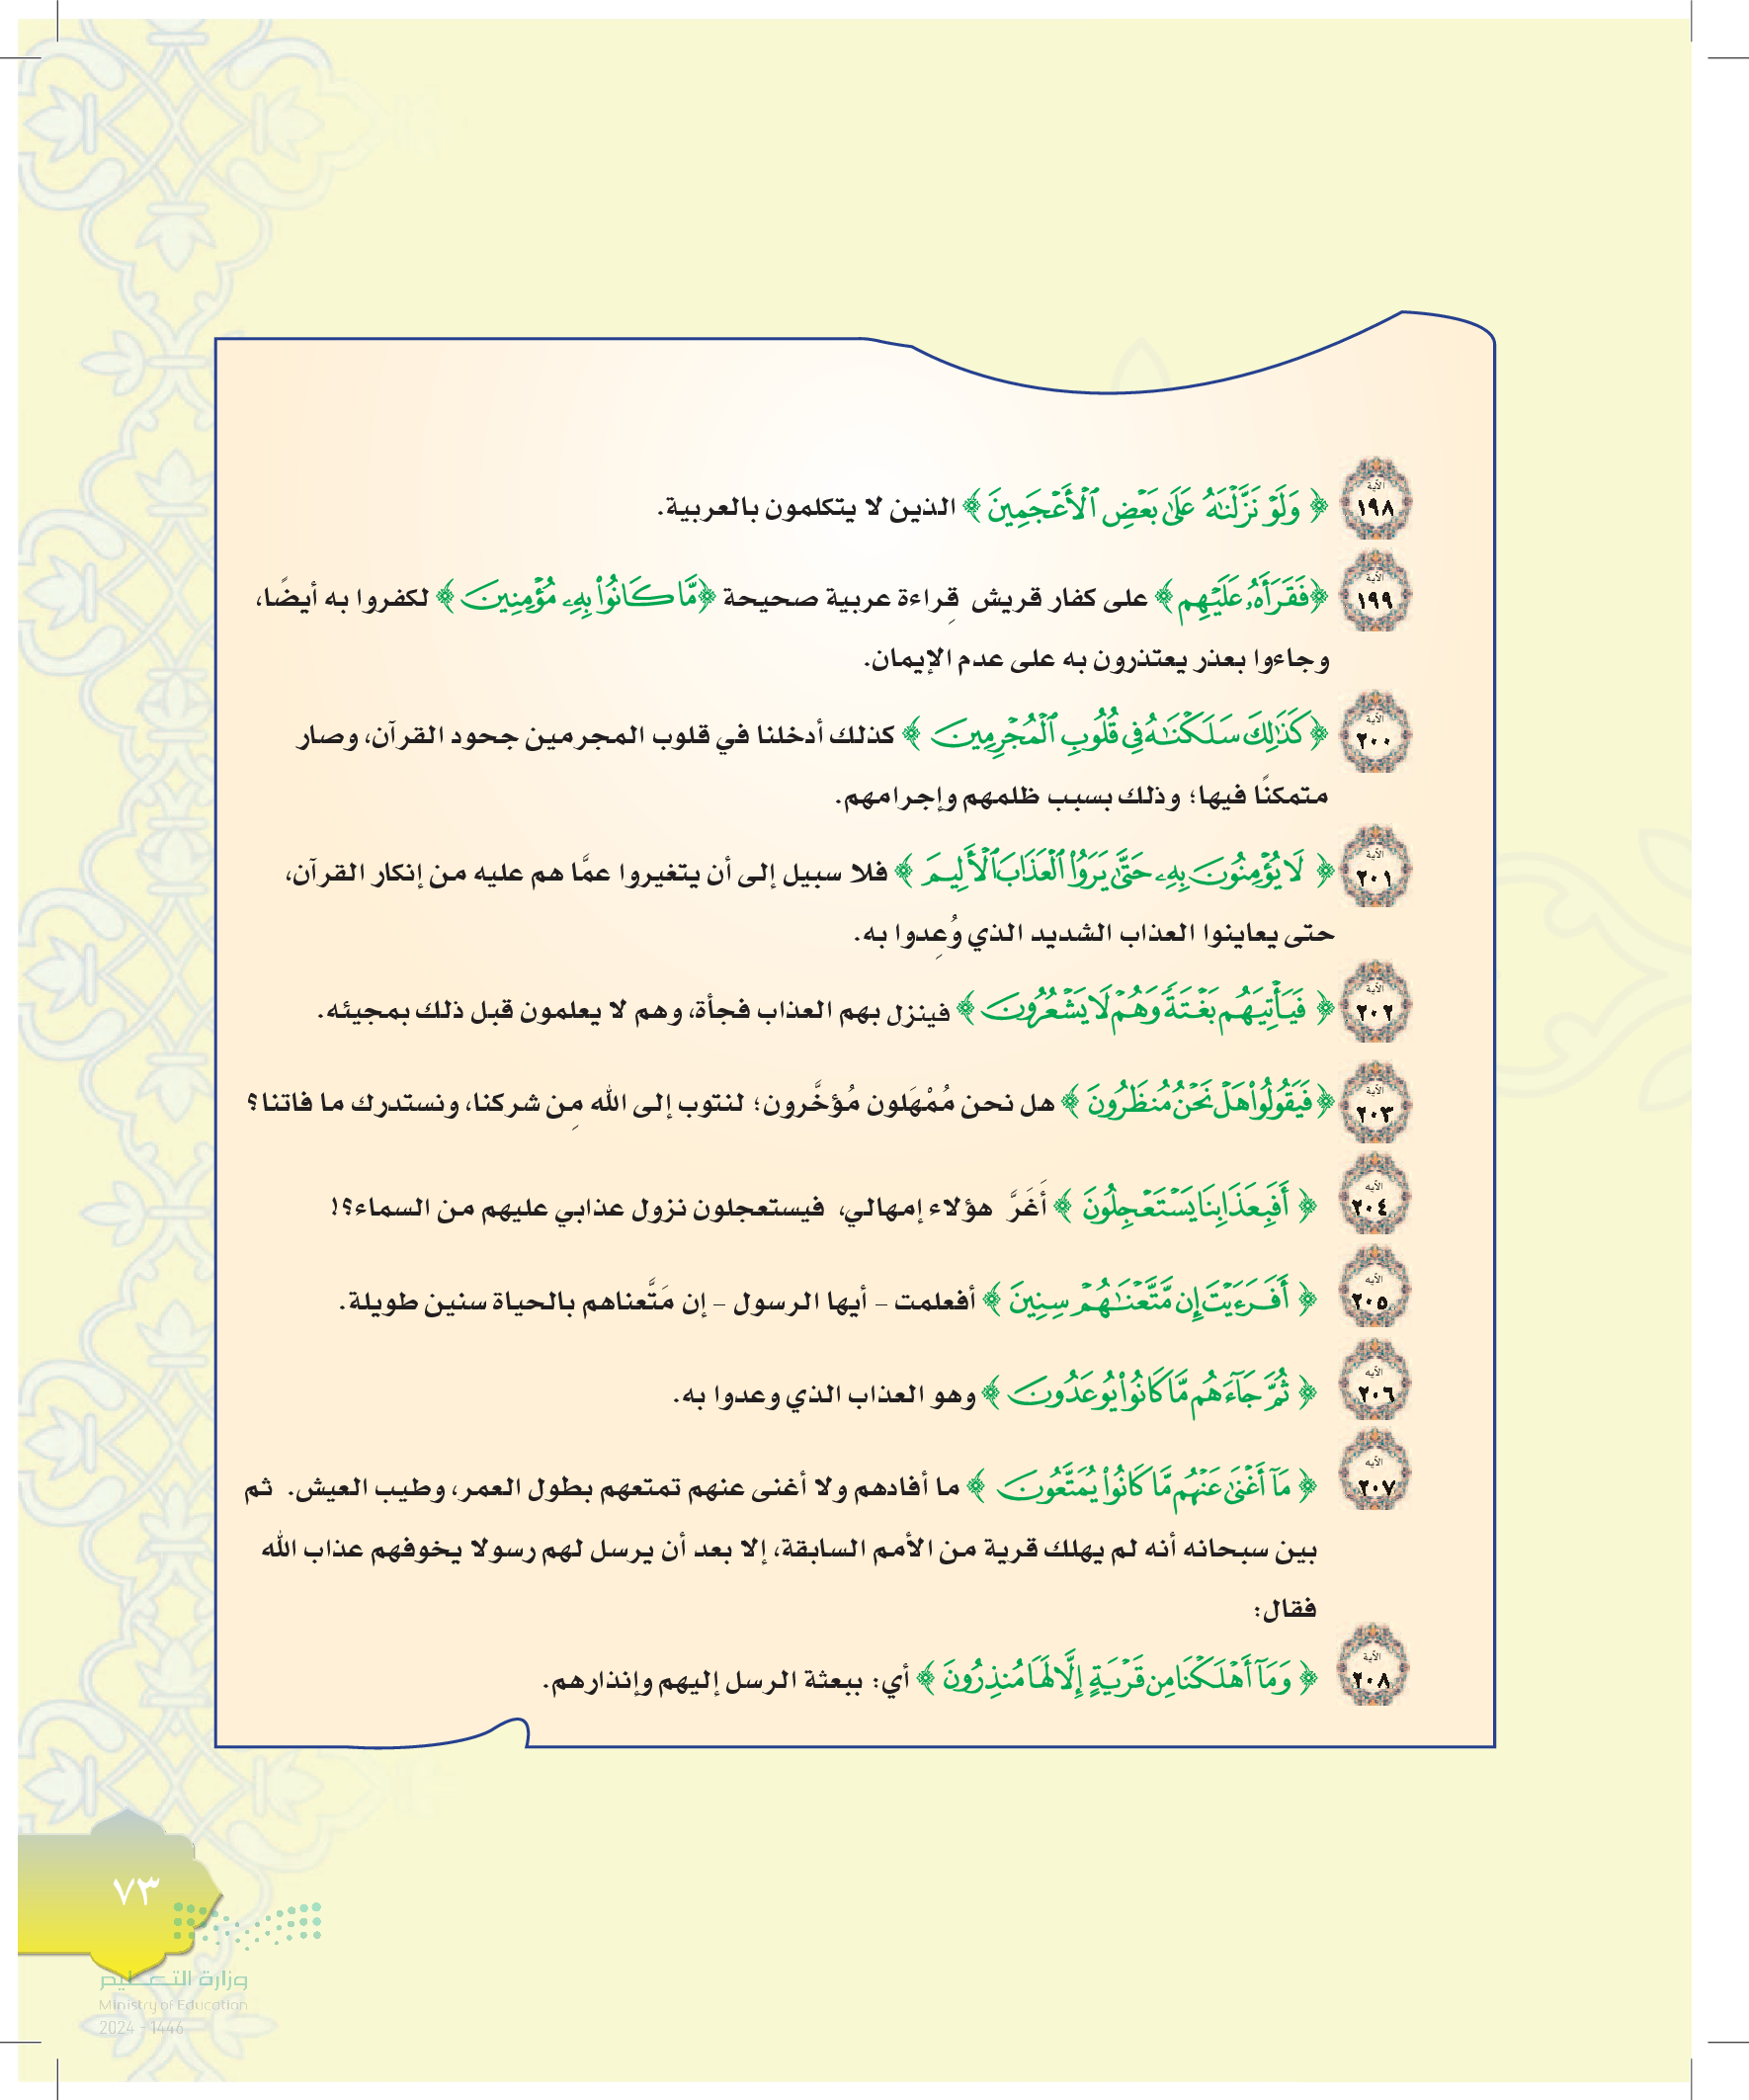 الآية ١٩٨ ﴿ وَلَوْ نَزَّلْنَٰهُ عَلَىٰ بَعْضِ ٱلْأَعْجَمِينَ ﴾ الذين لا يتكلمون بالعربية.
الآية ١٩٩ ﴿فَقَرَأَهُۥ عَلَيْهِم ﴾ على كفار قريش قِراءة عربية صحيحة ﴿مَّا كَانُوا۟ بِهِۦ مُؤْمِنِينَ ﴾ لكفروا به أيضًا،
وجاءوا بعذر يعتذرون به على عدم الإيمان.
الآية ٢٠٠ ﴿كَذَٰلِكَ سَلَكْنَٰهُ فِى قُلُوبِ ٱلْمُجْرِمِينَ ﴾ كذلك أدخلنا في قلوب المجرمين جحود القرآن، وصار
متمكنًا فيها؛ وذلك بسبب ظلمهم وإجرامهم.
الآية ٢٠١ ﴿ لَا يُؤْمِنُونَ بِهِۦ حَتَّىٰ يَرَوُا۟ ٱلْعَذَابَ ٱلْأَلِيمَ ﴾ فلا سبيل إلى أن يتغيروا عمَّا هم عليه من إنكار القرآن،
حتى يعاينوا العذاب الشديد الذي وُعِدوا به.
الآية ٢٠٢ ﴿ فَيَأْتِيَهُم بَغْتَةً وَهُمْ لَا يَشْعُرُونَ ﴾ فينزل بهم العذاب فجأة، وهم لا يعلمون قبل ذلك بمجيئه.
الآية ٢٠٣ ﴿فَيَقُولُوا۟ هَلْ نَحْنُ مُنظَرُونَ ﴾ هل نحن مُمْهَلون مُؤخَّرون؛ لنتوب إلى الله مِن شركنا، ونستدرك ما فاتنا؟
الآية ٢٠٤ ﴿ أَفَبِعَذَابِنَا يَسْتَعْجِلُونَ ﴾ أَغَرَّ هؤلاء إمهالي، فيستعجلون نزول عذابي عليهم من السماء؟!
الآية ٢٠٥ ﴿ أَفَرَءَيْتَ إِن مَّتَّعْنَٰهُمْ سِنِينَ ﴾ أفعلمت – أيها الرسول – إن مَتَّعناهم بالحياة سنين طويلة.
الآية ٢٠٦ ﴿ ثُمَّ جَآءَهُم مَّا كَانُوا۟ يُوعَدُونَ ﴾ وهو العذاب الذي وعدوا به.
الآية ٢٠٧ ﴿ مَآ أَغْنَىٰ عَنْهُم مَّا كَانُوا۟ يُمَتَّعُونَ ﴾ ما أفادهم ولا أغنى عنهم تمتعهم بطول العمر، وطيب العيش. ثم
بين سبحانه أنه لم يهلك قرية من الأمم السابقة، إلا بعد أن يرسل لهم رسولا يخوفهم عذاب الله
فقال:
الآية ٢٠٨ ﴿ وَمَآ أَهْلَكْنَا مِن قَرْيَةٍ إِلَّا لَهَا مُنذِرُونَ ﴾ أي: ببعثة الرسل إليهم وإنذارهم.
٧٣
وزارة التعليم
Ministry of Education
2024 - 1446